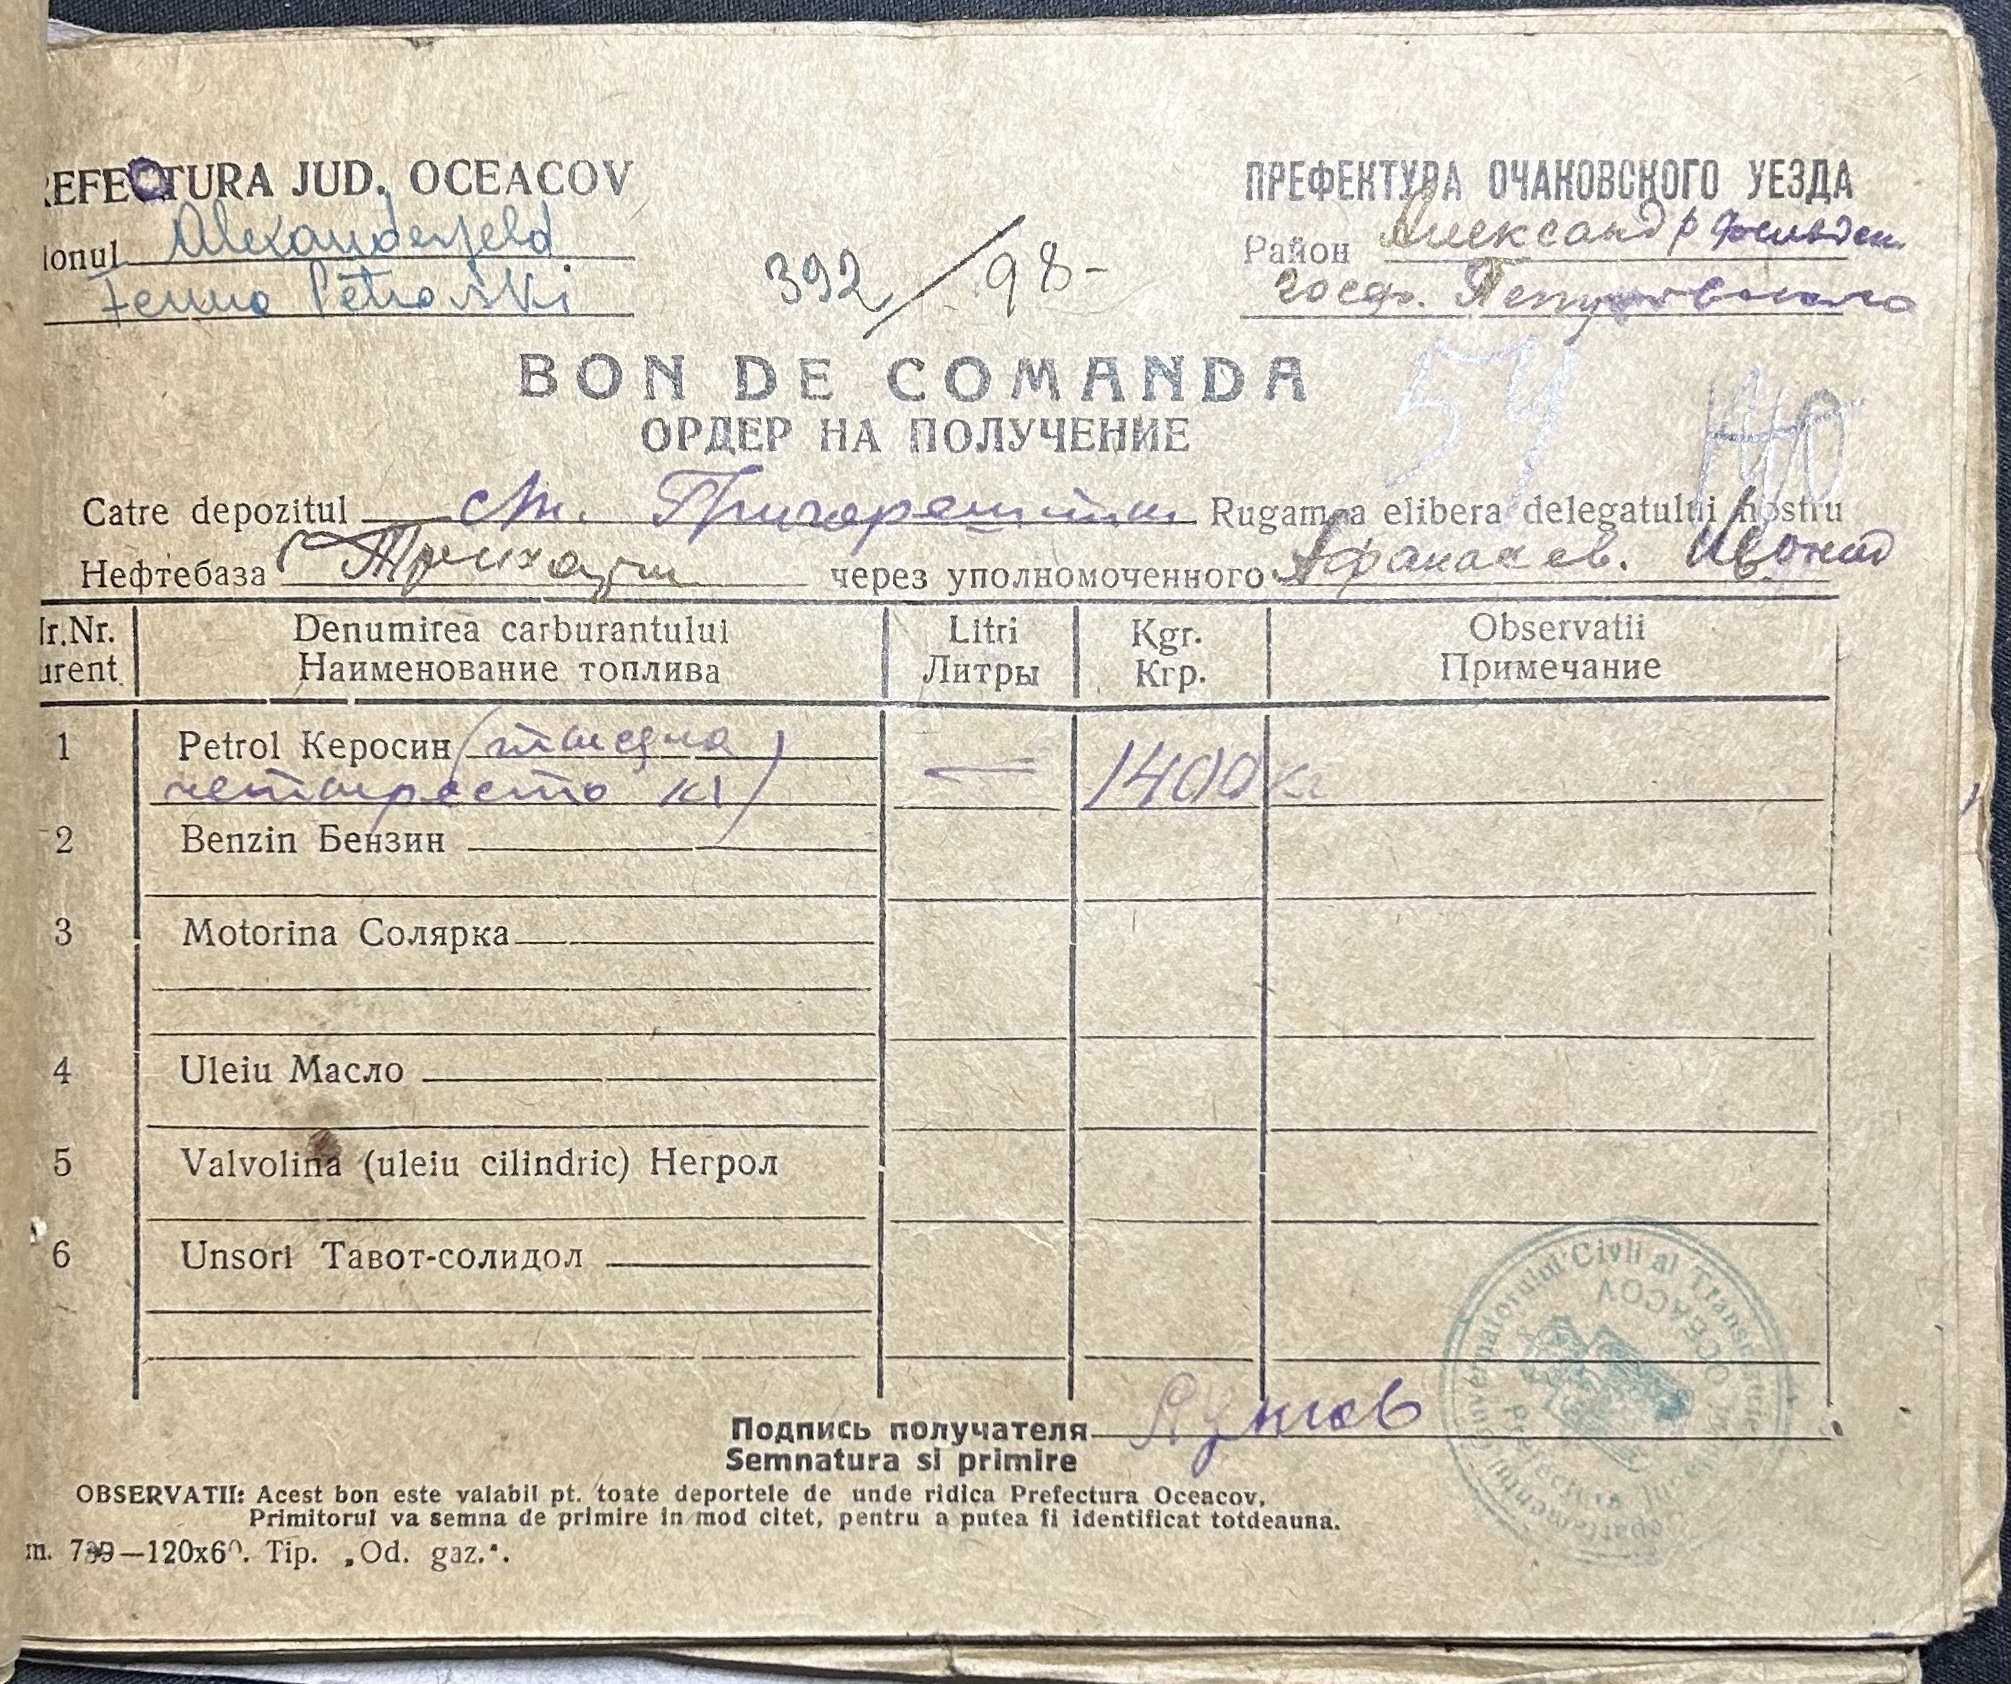 REFECTURA JUD. OCEACOV
ПРЕФЕКТУРА ОЧАКОВСКОГО УЕЗДА
ionul Alexanderfeld
Район Александрфельдск.
Ferma Petrovski
госф.
392/98-
BON DE COMANDA
54 140
ОРДЕР НА ПОЛУЧЕНИЕ
Catre depozitul ст. Rugam a elibera delegatului nostru
Нефтебаза Трихати через уполномоченного Афанасев.
Nr.Nr. Denumirea carburantului Litri Kgr. Observatii
urent. Наименование топлива Литры Кгр. Примечание
1 Petrol Керосин (тисяча
четиресто кг) — 1400 кг
2 Benzin Бензин
3 Motorina Солярка
4 Uleiu Масло
5 Valvolina (uleiu cilindric) Негрол
6 Unsori Тавот-солидол
Подпись получателя
Semnatura si primire
OBSERVATII: Acest bon este valabil pt. toate deportele de unde ridica Prefectura Oceacov,
Primitorul va semna de primire in mod citet, pentru a putea fi identificat totdeauna.
m. 739—120x60. Tip. „Od. gaz.".
Guvernatorului Civil al Transnistriei
Prefectura Jud.
OCEACOV